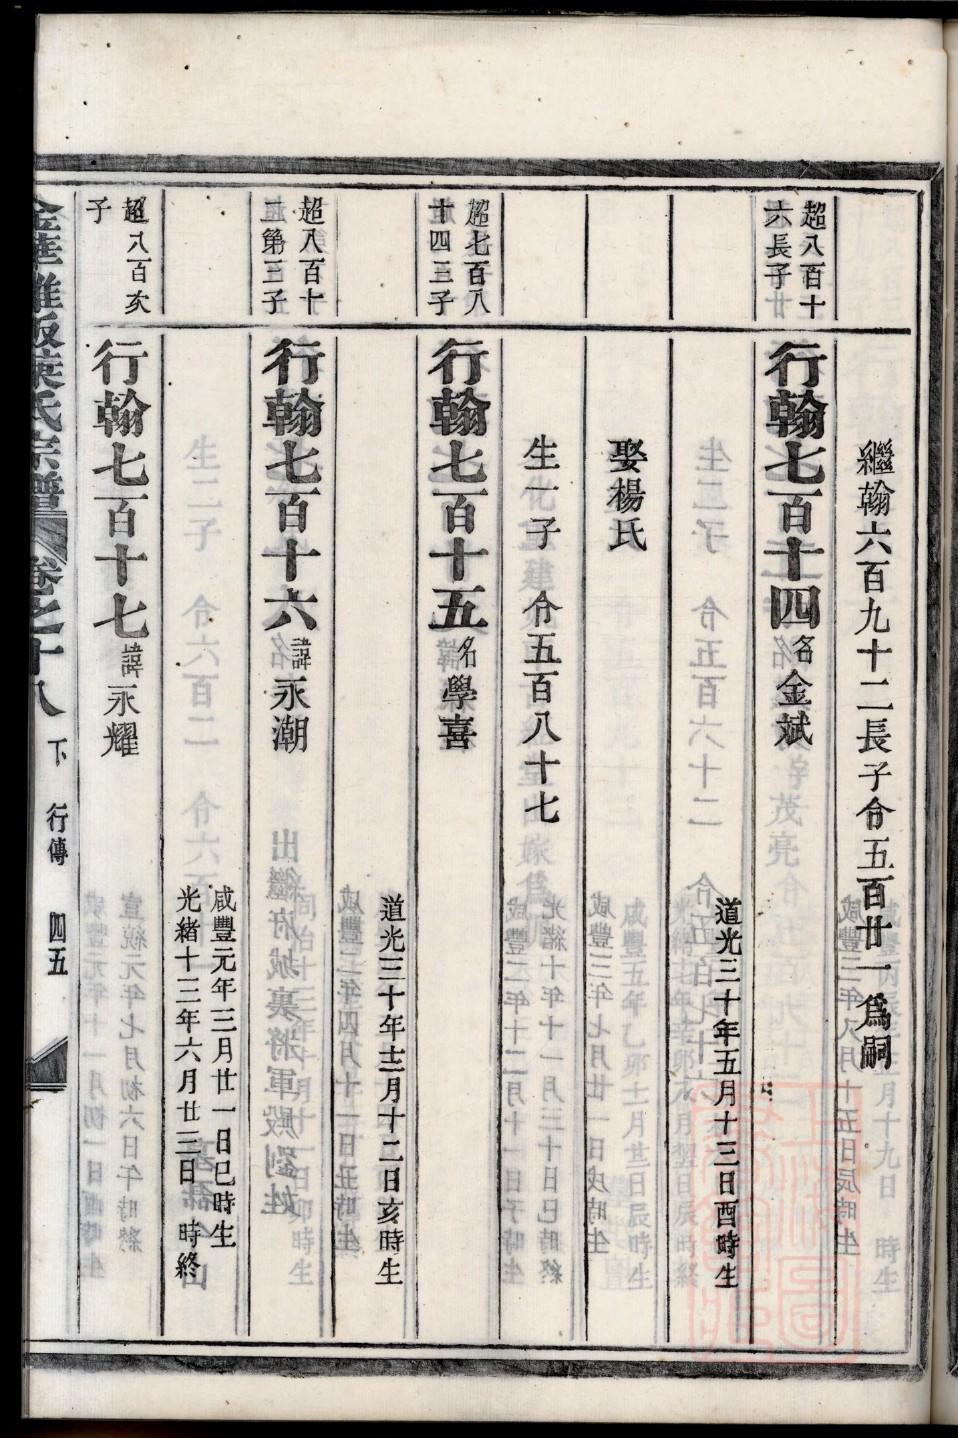 繼翰六百九十二長子令五百廿一為嗣
超八百十
六長子
行翰七百十四 名金斌
道光三十年五月十三日酉時生
娶楊氏
生一子 令五百八十七
超七百八
十四三子
行翰七百十五 名學喜
道光三十年十二月十二日亥時生
超八百十
第三子
行翰七百十六 諱永潮
咸豐元年三月廿一日巳時生
光緒十三年六月廿三日 時終
超八百次
子
行翰七百十七 諱永耀
氏宗譜 卷之十八 下 行傳 四五